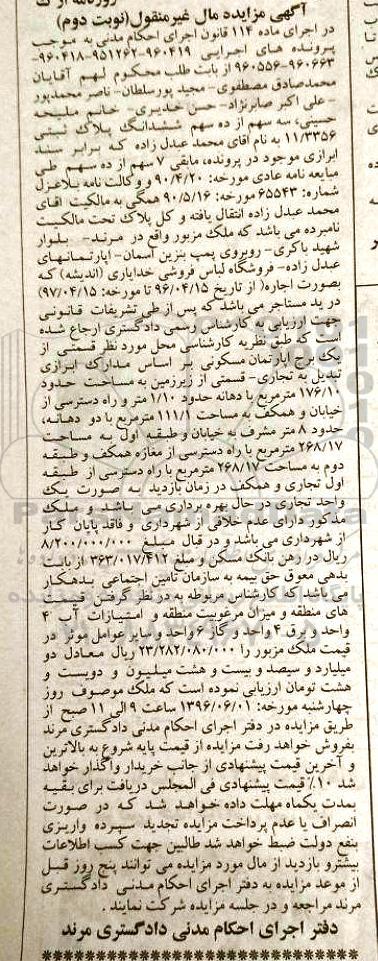 آگهی مزایده مال غیرمنقول(نوبت دوم)
در اجرای ماده ۱۱۴ قانون اجرای احکام مدنی به موجب
پرونده های اجرایی ۹۶۰۴۱۹-۹۵۱۲۶۲-۹۶۰۴۱۸-
۹۶۰۵۵۶-۹۶۰۶۶۳ از بابت طلب محکوم لهم آقایان
محمدصادق مصطفوی- مجید پورسلطان- ناصر محمدپور
-علی اکبر صابرنژاد- حسن خدیری- خانم ملیحه
حسینی، سه سهم از ده سهم ششدانگ پلاک ثبتی
۱۱/۳۳۵۶ به نام آقای محمد عبدل زاده که برابر سند
ابرازی موجود در پرونده، مابقی ۷ سهم از ده سهم طی
مبایعه نامه عادی مورخه: ۹۰/۴/۲۰ و وکالت نامه بلاعزل
شماره: ۶۵۵۴۳ مورخه: ۹۰/۵/۱۶ همگی به مالکیت آقای
محمد عبدل زاده انتقال یافته و کل پلاک تحت مالکیت
نامبرده می باشد که ملک مزبور واقع در مرند- بلوار
شهید باکری- روبروی پمپ بنزین آسمان- آپارتمانهای
عبدل زاده- فروشگاه لباس فروشی خدایاری (اندیشه) که
بصورت اجاره( از تاریخ ۹۶/۰۴/۱۵ تا مورخه: ۹۷/۰۴/۱۵)
در ید مستاجر می باشد که پس از طی تشریفات قانونی
جهت ارزیابی به کارشناس رسمی دادگستری ارجاع شده
است که طبق نظریه کارشناسی محل مورد نظر قسمتی از
یک برج آپارتمان مسکونی بر اساس مدارک ابرازی
تبدیل به تجاری- قسمتی از زیرزمین به مساحت حدود
۱۷۶/۱۱ مترمربع با دهانه حدود ۱/۱۰ متر و راه دسترسی از
خیابان و همکف به مساحت ۱۱۱/۱ مترمربع با دو دهانه،
حدود ۸ متر مشرف به خیابان و طبقه اول به مساحت
۲۶۸/۱۷ مترمربع با راه دسترسی از مغازه همکف و طبقه
دوم به مساحت ۲۶۸/۱۷ مترمربع با راه دسترسی از طبقه
اول تجاری و همکف در زمان بازدید به صورت یک
واحد تجاری در حال بهره برداری می باشد و ملک
مذکور دارای عدم خلافی از شهرداری و فاقد پایان کار
از شهرداری می باشد و در قبال مبلغ ۸/۲۰۰/۰۰۰/۰۰۰
ریال در رهن بانک مسکن و مبلغ ۳۶۳/۰۱۷/۴۱۲ از بابت
بدهی معوق حق بیمه به سازمان تامین اجتماعی بدهکار
می باشد که کارشناس مربوطه به در نظر گرفتن قیمت
های منطقه و میزان مرغوبیت منطقه و امتیازات آب ۴
واحد و برق ۴ واحد و گاز ۶ واحد و سایر عوامل موثر در
قیمت ملک مزبور را ۲۳/۲۸۲/۰۸۰/۰۰۰ ریال معادل دو
میلیارد و سیصد و بیست و هشت میلیون و دویست و
هشت تومان ارزیابی نموده است که ملک موصوف روز
چهارشنبه مورخه: ۱۳۹۶/۰۶/۰۱ ساعت ۹ الی ۱۱ صبح از
طریق مزایده در دفتر اجرای احکام مدنی دادگستری مرند
بفروش خواهد رفت مزایده از قیمت پایه شروع به بالاترین
و آخرین قیمت پیشنهادی از جانب خریدار واگذار خواهد
شد ۱۰٪ قیمت پیشنهادی فی المجلس دریافت برای بقیه
بمدت یکماه مهلت داده خواهد شد که در صورت
انصراف یا عدم پرداخت مزایده تجدید سپرده واریزی
بنفع دولت ضبط خواهد شد طالبین جهت کسب اطلاعات
بیشترو بازدید از مال مورد مزایده می توانند پنج روز قبل
از موعد مزایده به دفتر اجرای احکام مدنی دادگستری
مرند مراجعه و در جلسه مزایده شرکت نمایند .
دفتر اجرای احکام مدنی دادگستری مرند